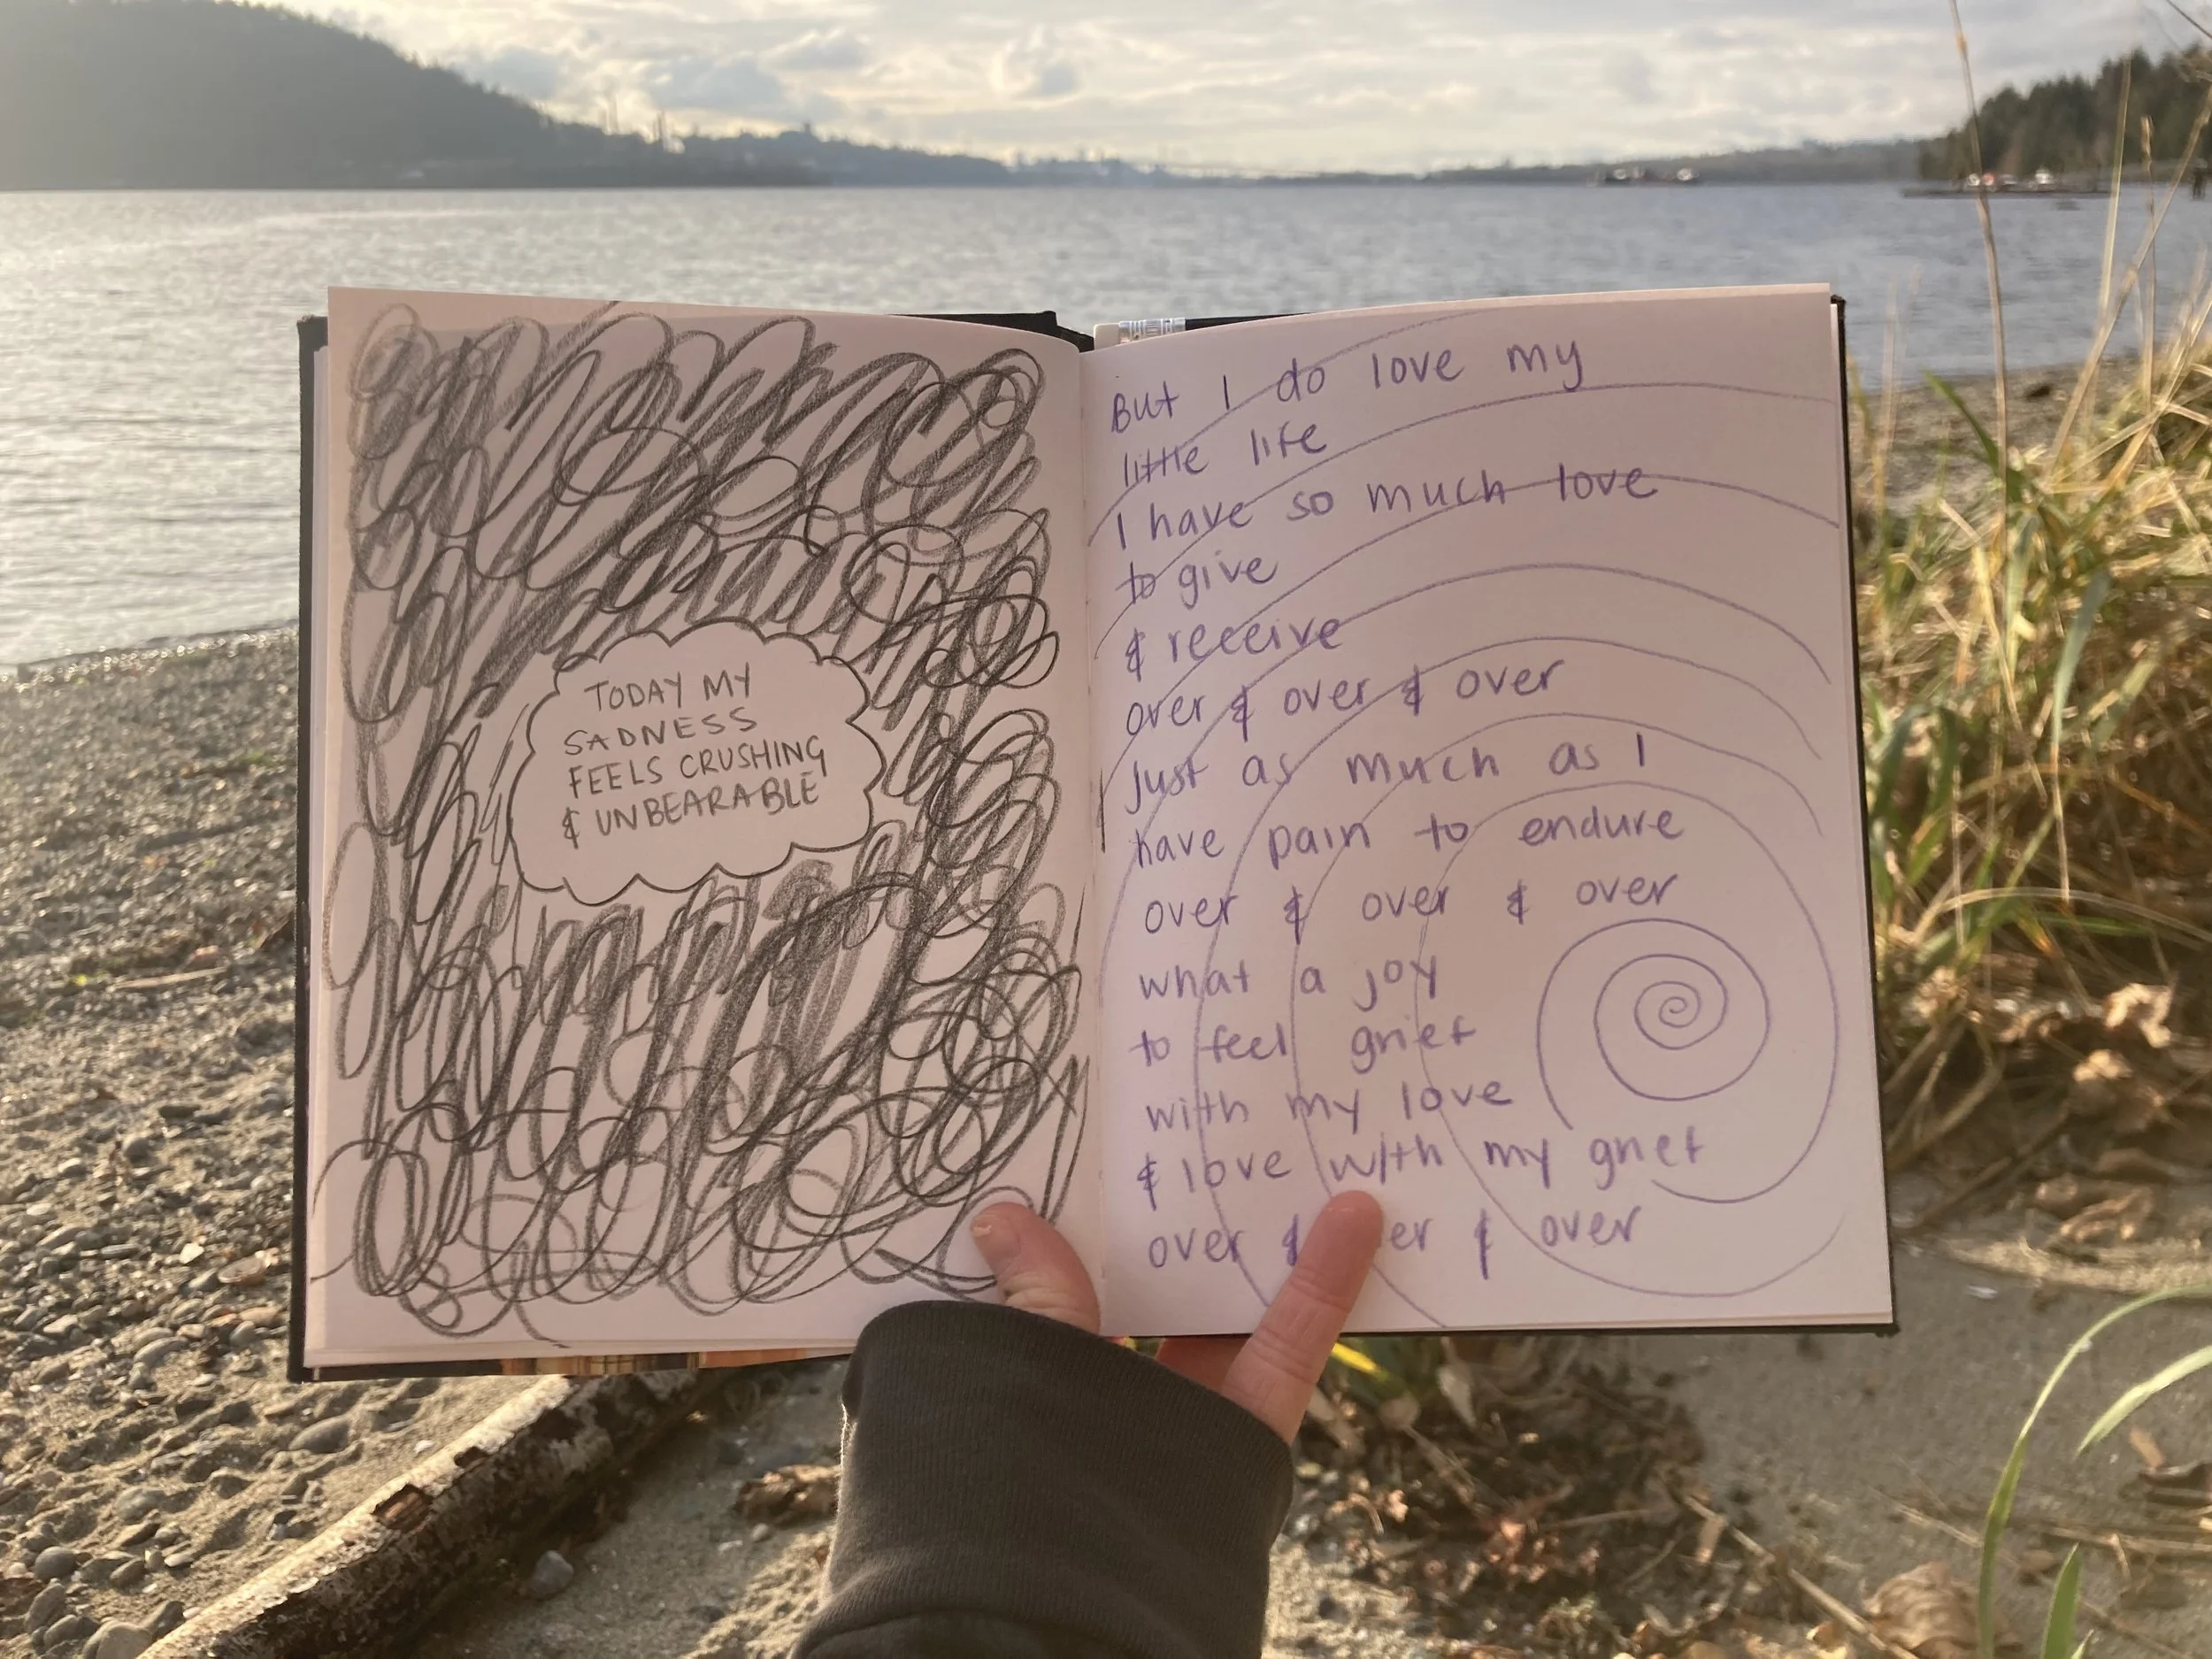 TODAY MY
SADNESS
FEELS CRUSHING
& UNBEARABLE
But I do love my
little life
I have so much love
to give
& receive
over & over & over
just as much as I
have pain to endure
over & over & over
what a joy
to feel grief
with my love
& love with my grief
over & er & over